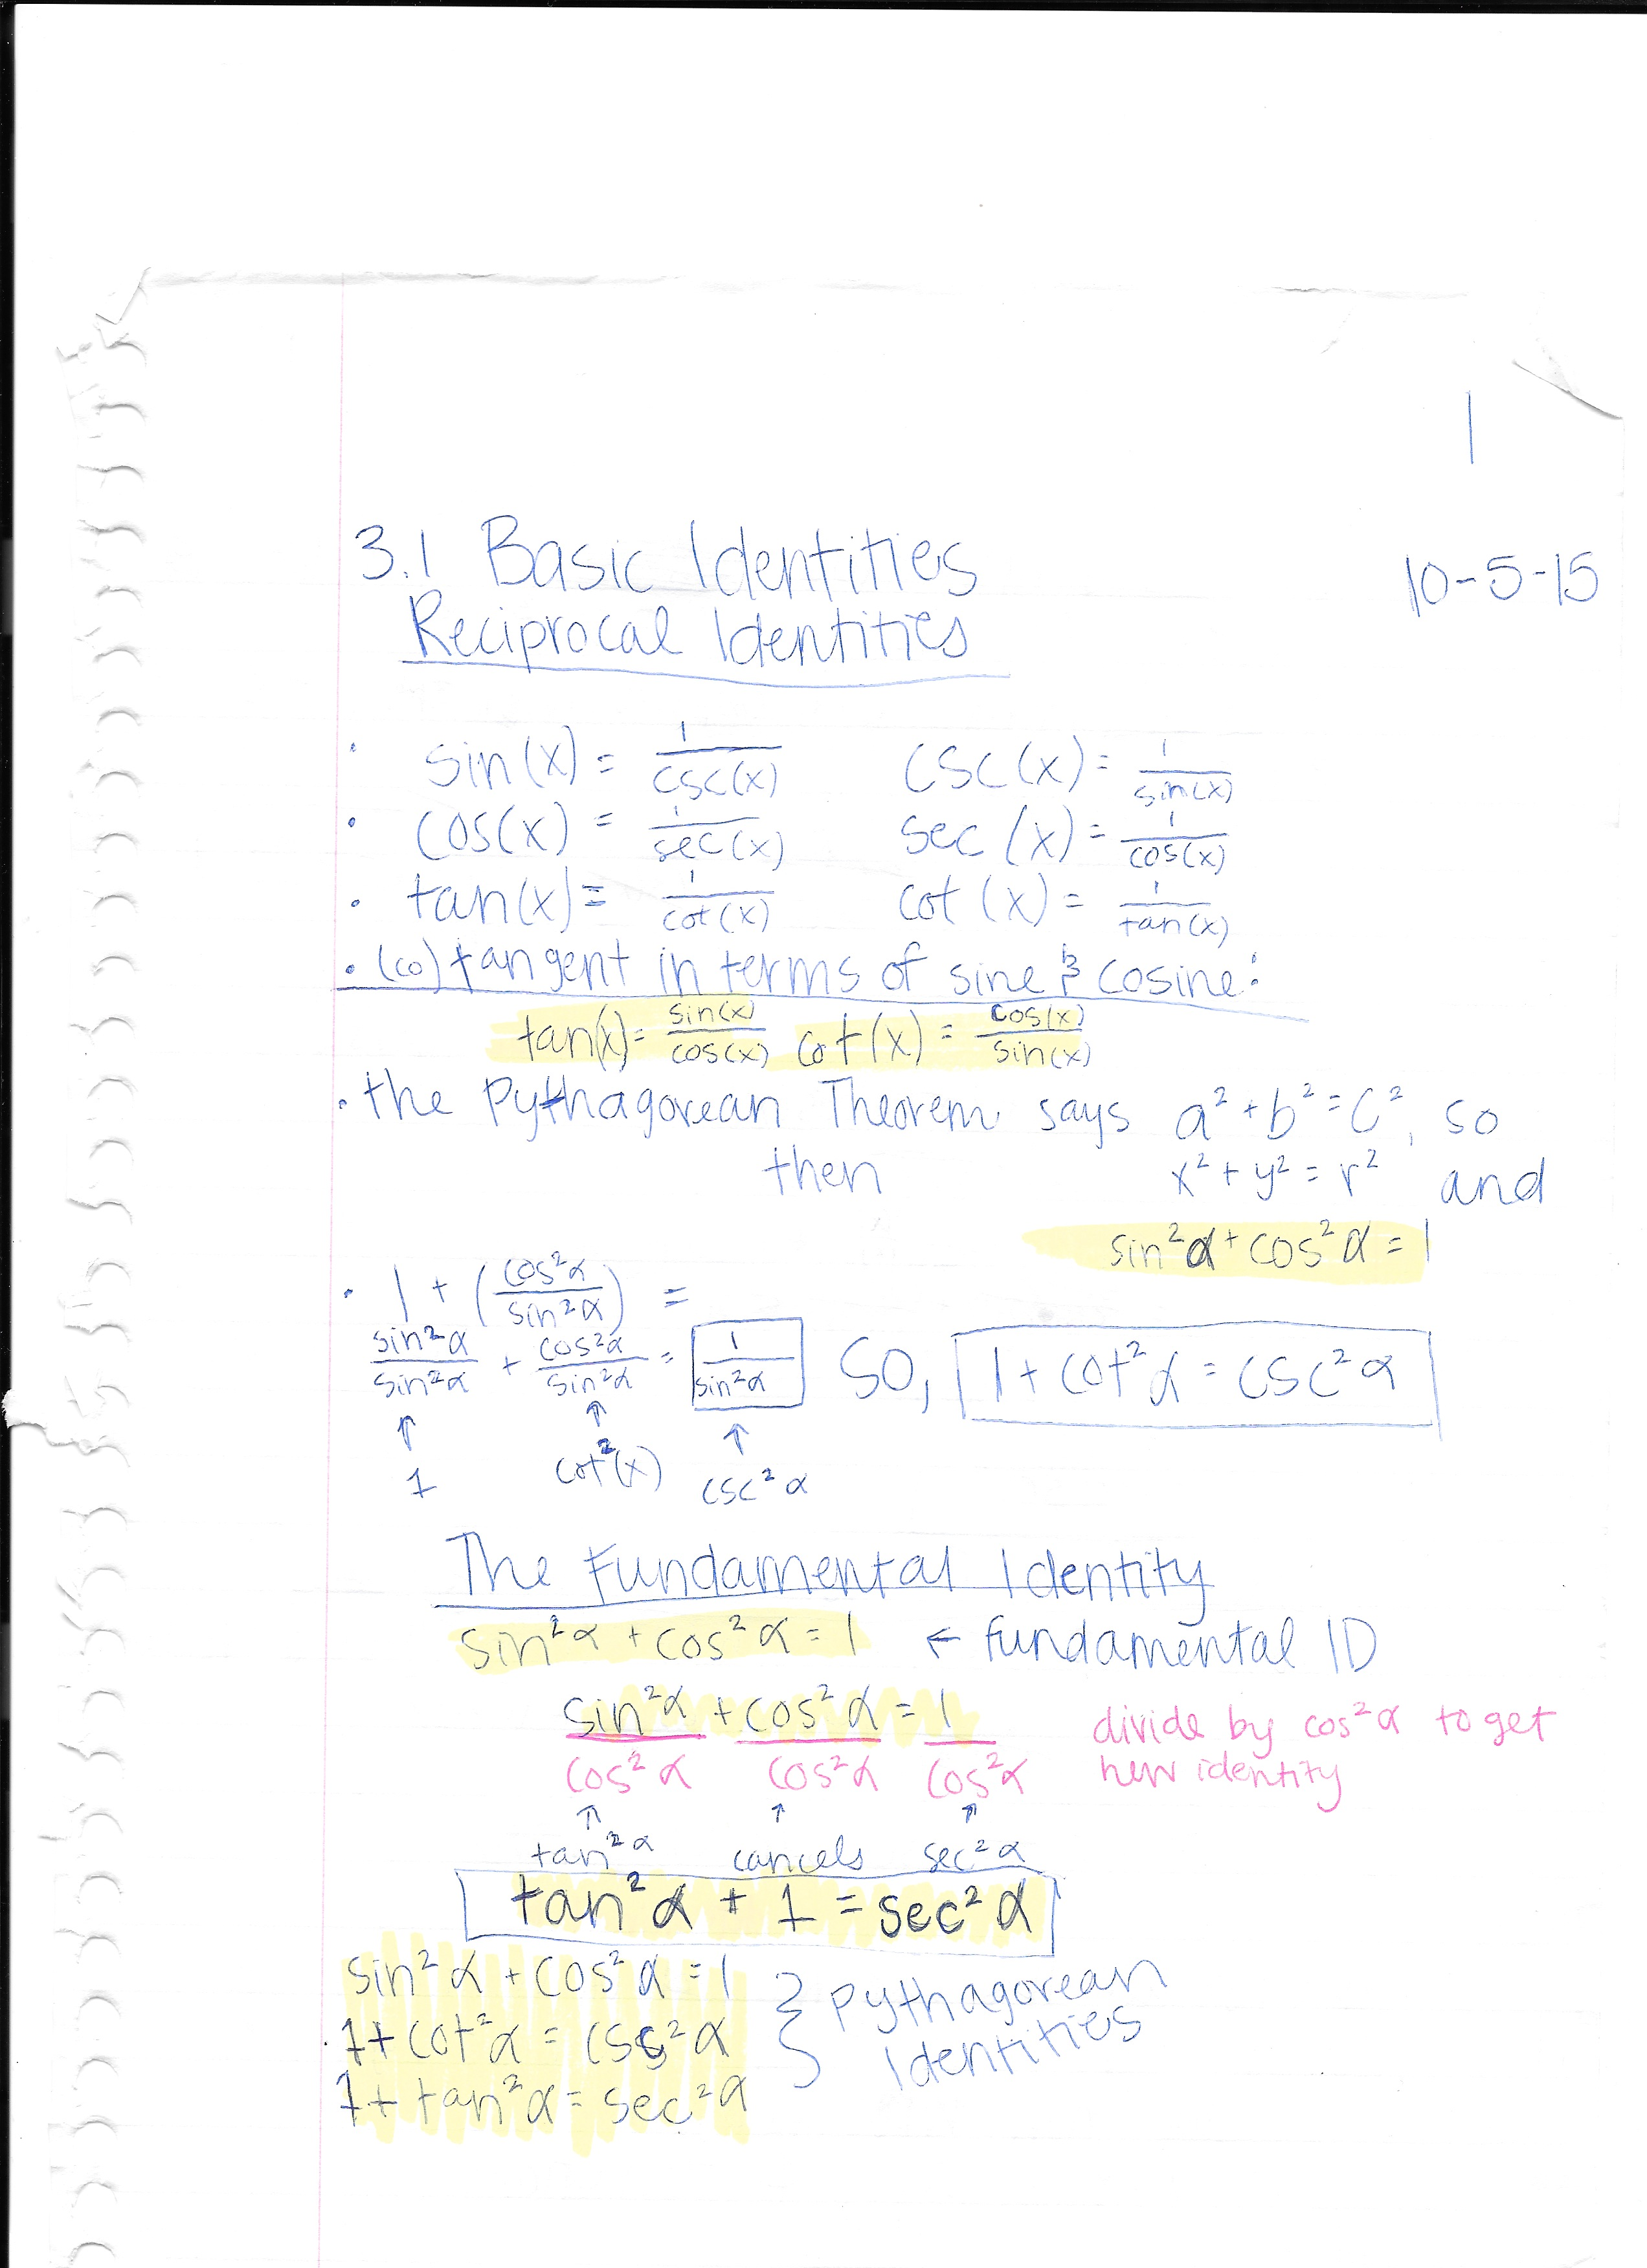 1
3.1 Basic Identities 10-5-15
Reciprocal Identities
• sin(x) = 1/csc(x) csc(x) = 1/sin(x)
• cos(x) = 1/sec(x) sec(x) = 1/cos(x)
• tan(x) = 1/cot(x) cot(x) = 1/tan(x)
• (co)tangent in terms of sine & cosine:
tan(x) = sin(x)/cos(x) cot(x) = cos(x)/sin(x)
• the Pythagorean Theorem says a² + b² = c², so
then x² + y² = r² and
sin²α + cos²α = 1
• 1 + (cos²α/sin²α) =
sin²α/sin²α + cos²α/sin²α = 1/sin²α so, 1 + cot²α = csc²α
↑ ↑ ↑
1 cot²(x) csc²α
The Fundamental Identity
sin²α + cos²α = 1 ← fundamental ID
sin²α/cos²α + cos²α/cos²α = 1/cos²α divide by cos²α to get
new identity
↑ ↑ ↑
tan²α cancels sec²α
tan²α + 1 = sec²α
sin²α + cos²α = 1 } Pythagorean
• 1 + cot²α = csc²α Identities
1 + tan²α = sec²α